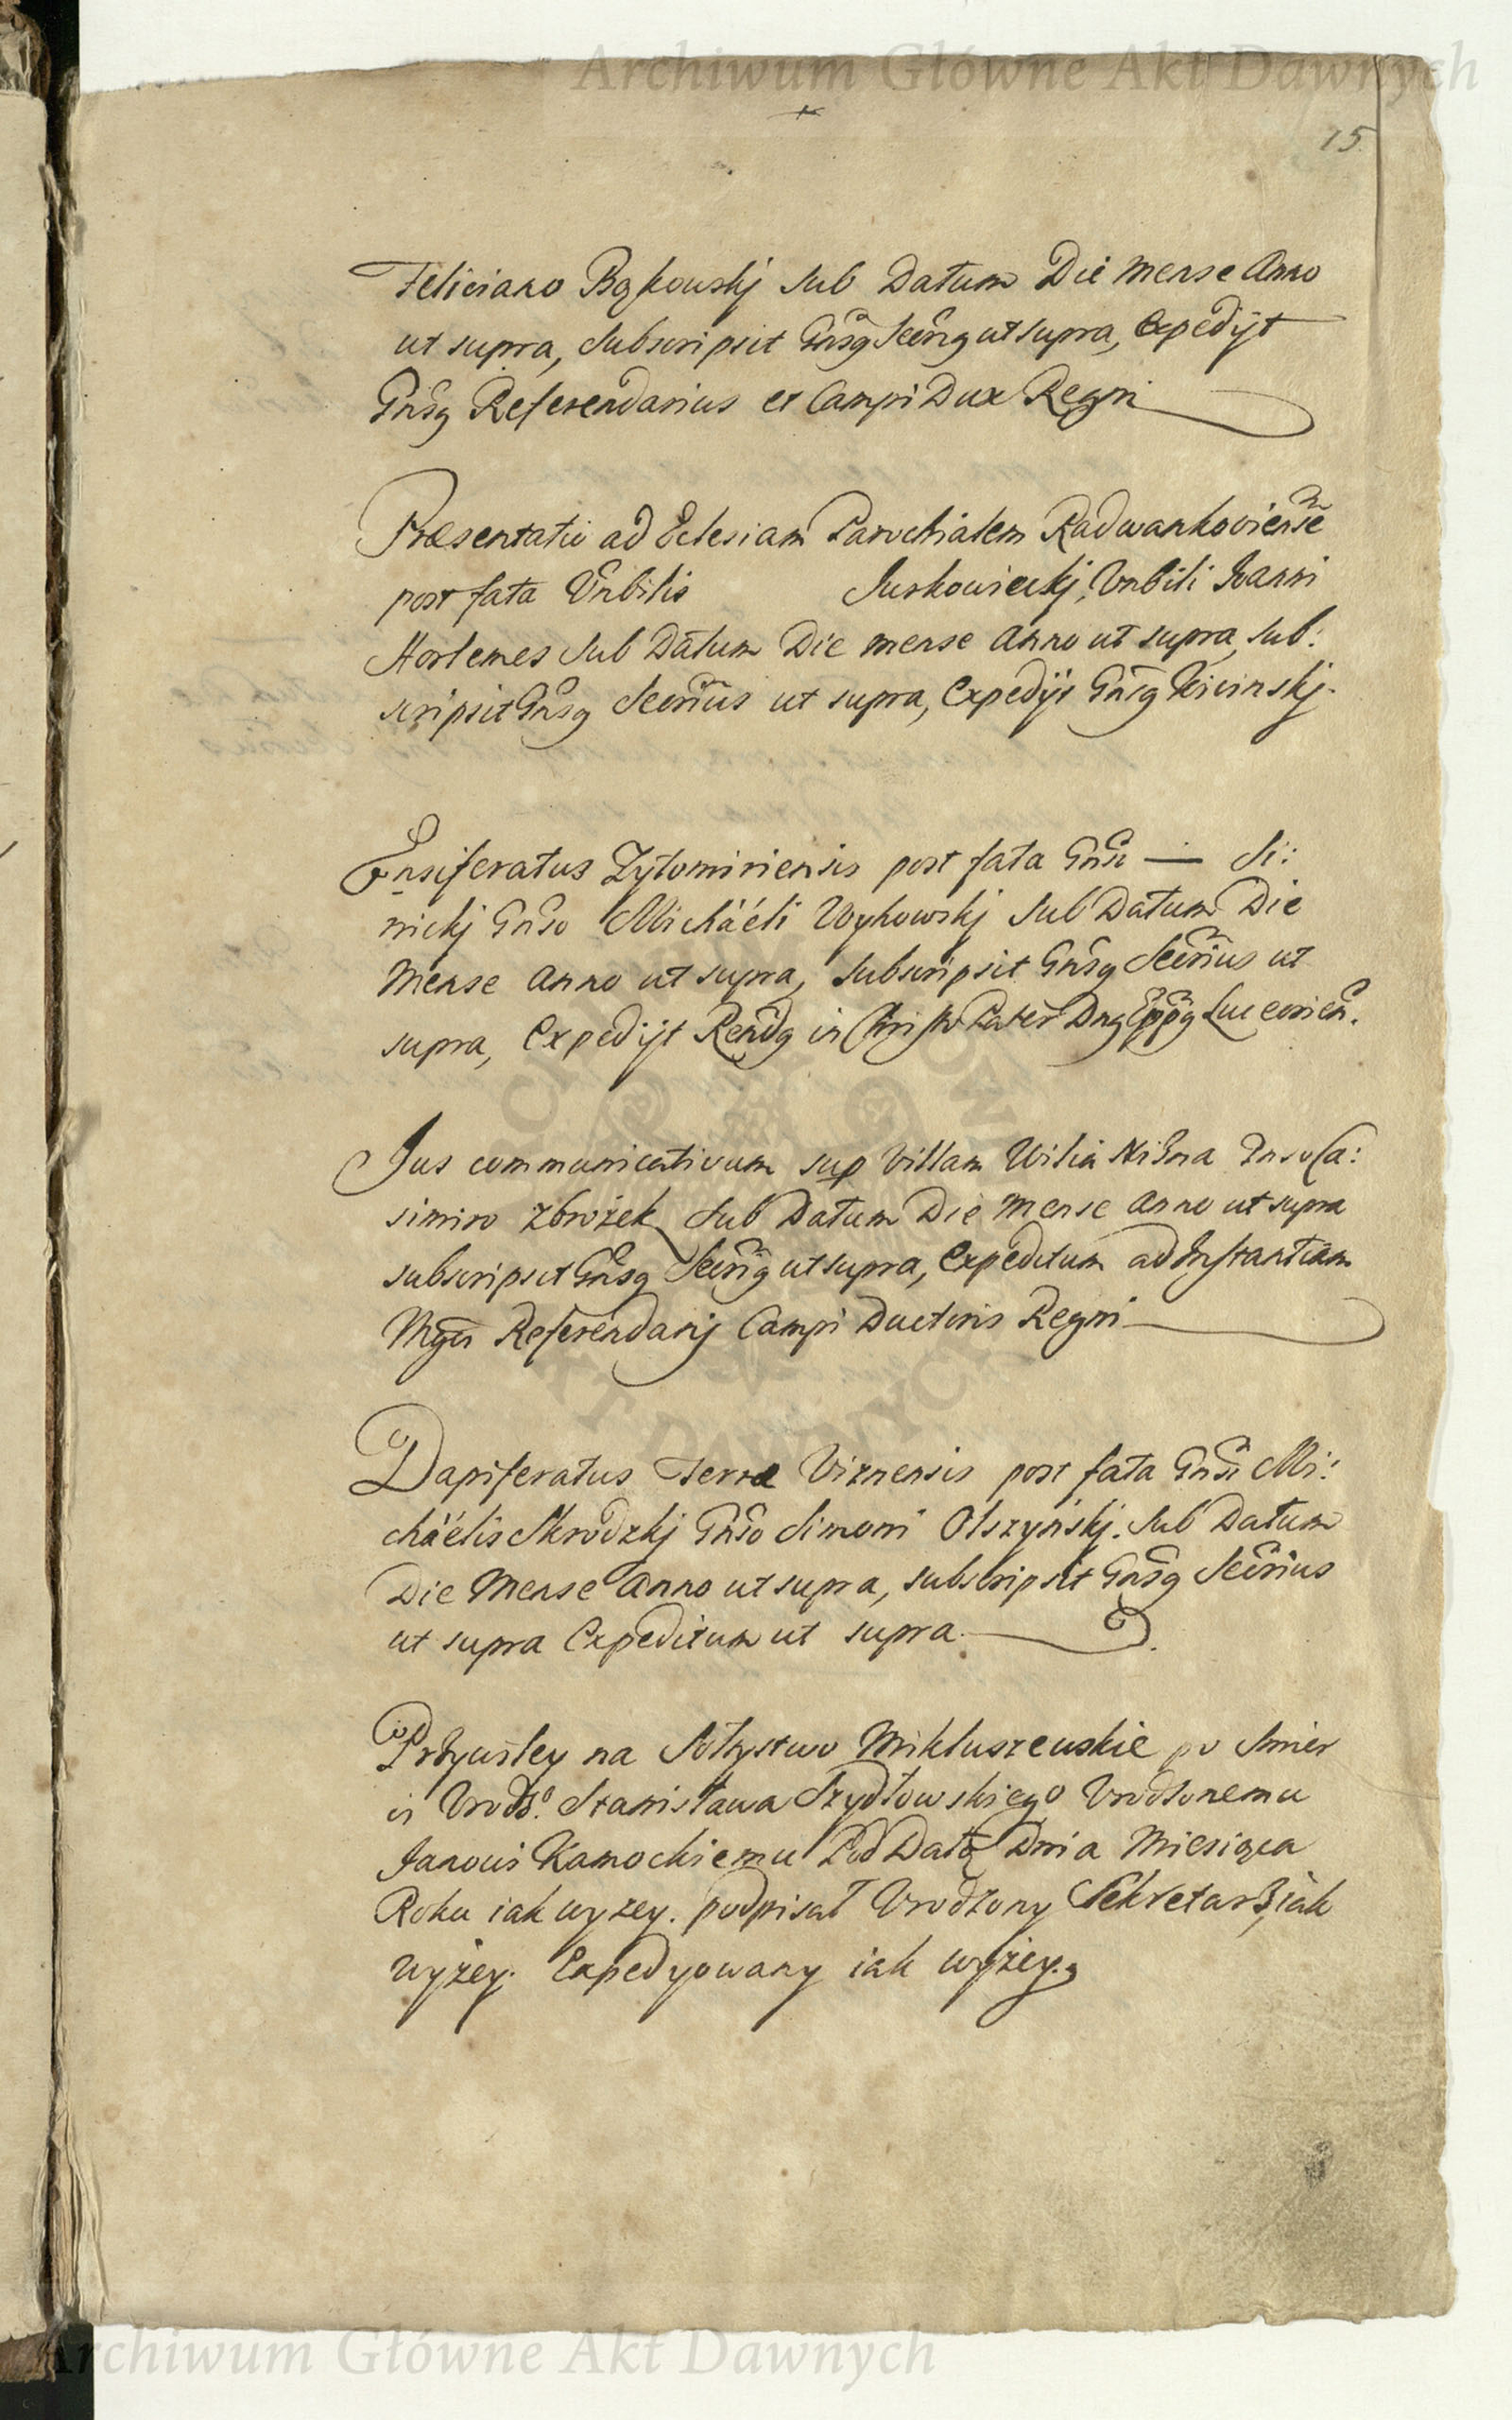 Archiwum Główne Akt Dawnych
15
Feliciano Bąkowskj Sub Datum Die Mense Anno
ut supra, Subscripsit Gnsq Secriq ut supra, Expedijt
Gnsq Referendarius et Campi Dux Regni
Præsentatio ad Eclesiam Parochialem Radwankoviense
post fata Vnbilis Jurkowieckj, Vnbili Joanni
Hortemes Sub Datum Die Mense Anno ut supra, Sub:
scripsit Gnsq Secrius ut supra, Expedijt Gnsq
Ensiferatus Zytomiriensis post fata Gnsi — Si:
nickj Gnso Micháéli Woykowskj Sub Datum Die
Mense Anno ut supra, Subscripsit Gnsq Secrius ut
supra, Expedijt Rendq in Christo Pater Dnq Eppq Luceorien.
Jus communicativum sup Villam Wilia Niżna Gnso Ca:
simiro Zbrożek Sub Datum Die Mense Anno ut supra
subscripsit Gnsq Secriq ut supra, Expeditum ad Instantiam
Mgci Referendarij Campi Ductoris Regni
Dapiferatus Terræ Viznensis post fata Gnsi Mi:
cháélis Skrodzkj Gnso Simoni Olszyńskj. Sub Datum
Die Mense Anno ut supra, subscripsit Gnsq Secrius
ut supra Expeditum ut supra
Przywiley na Sołtystwo Mikłuszewskie po Smier
ci Vrodz.º Stanisława Szydłowskiego Vrodzonemu
Janowi Kamockiemu Pod Datą Dnia Miesiąca
Roku iak wyzey. podpisał Vrodzony Sekretarz, iak
wyżey. Expedyowany iak wyżey.
Archiwum Główne Akt Dawnych